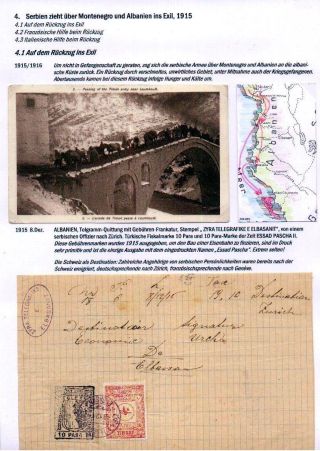 4. Serbien zieht über Montenegro und Albanien ins Exil, 1915
4.1 Auf dem Rückzug ins Exil
4.2 Französische Hilfe beim Rückzug
4.3 Italienische Hilfe beim Rückzug
4.1 Auf dem Rückzug ins Exil
1915/1916 Um nicht in Gefangenschaft zu geraten, zog sich die serbische Armee über Montenegro und Albanien an die albanische Küste zurück. Ein Rückzug durch verschneites, unwirtliches Gebiet, unter Mitnahme auch der Kriegsgefangenen.
Abertausende kamen bei diesem Rückzug infolge Hunger und Kälte um.
Passing of the Timok army near
L'armée de Timok passe à
Albanien
1915 8.Dez. ALBANIEN, Telegramm-Quittung mit Gebühren Frankatur, Stempel, „ZYRA TELEGRAFIKE E ELBASANIT", von einem
serbischen Offizier nach Zürich. Türkische Fiskalmarke 10 Para und 10 Para-Marke der Zeit ESSAD PASCHA II.
Diese Gebührenmarken wurden 1915 ausgegeben, um den Bau einer Eisenbahn zu finanzieren, sind im Druck
sehr primitiv und ist die einzige Ausgabe mit dem eingedruckten Namen „Essad Pascha". Extrem selten!
Die Schweiz als Destination: Zahlreiche Angehörige von serbischen Persönlichkeiten waren bereits nach der
Schweiz emigriert, deutschsprechende nach Zürich, französischsprechende nach Genève.
8/12/15
19.10
Destination
Zurich
Destination
Signature
Economic
De
Elbassan
10 PARA